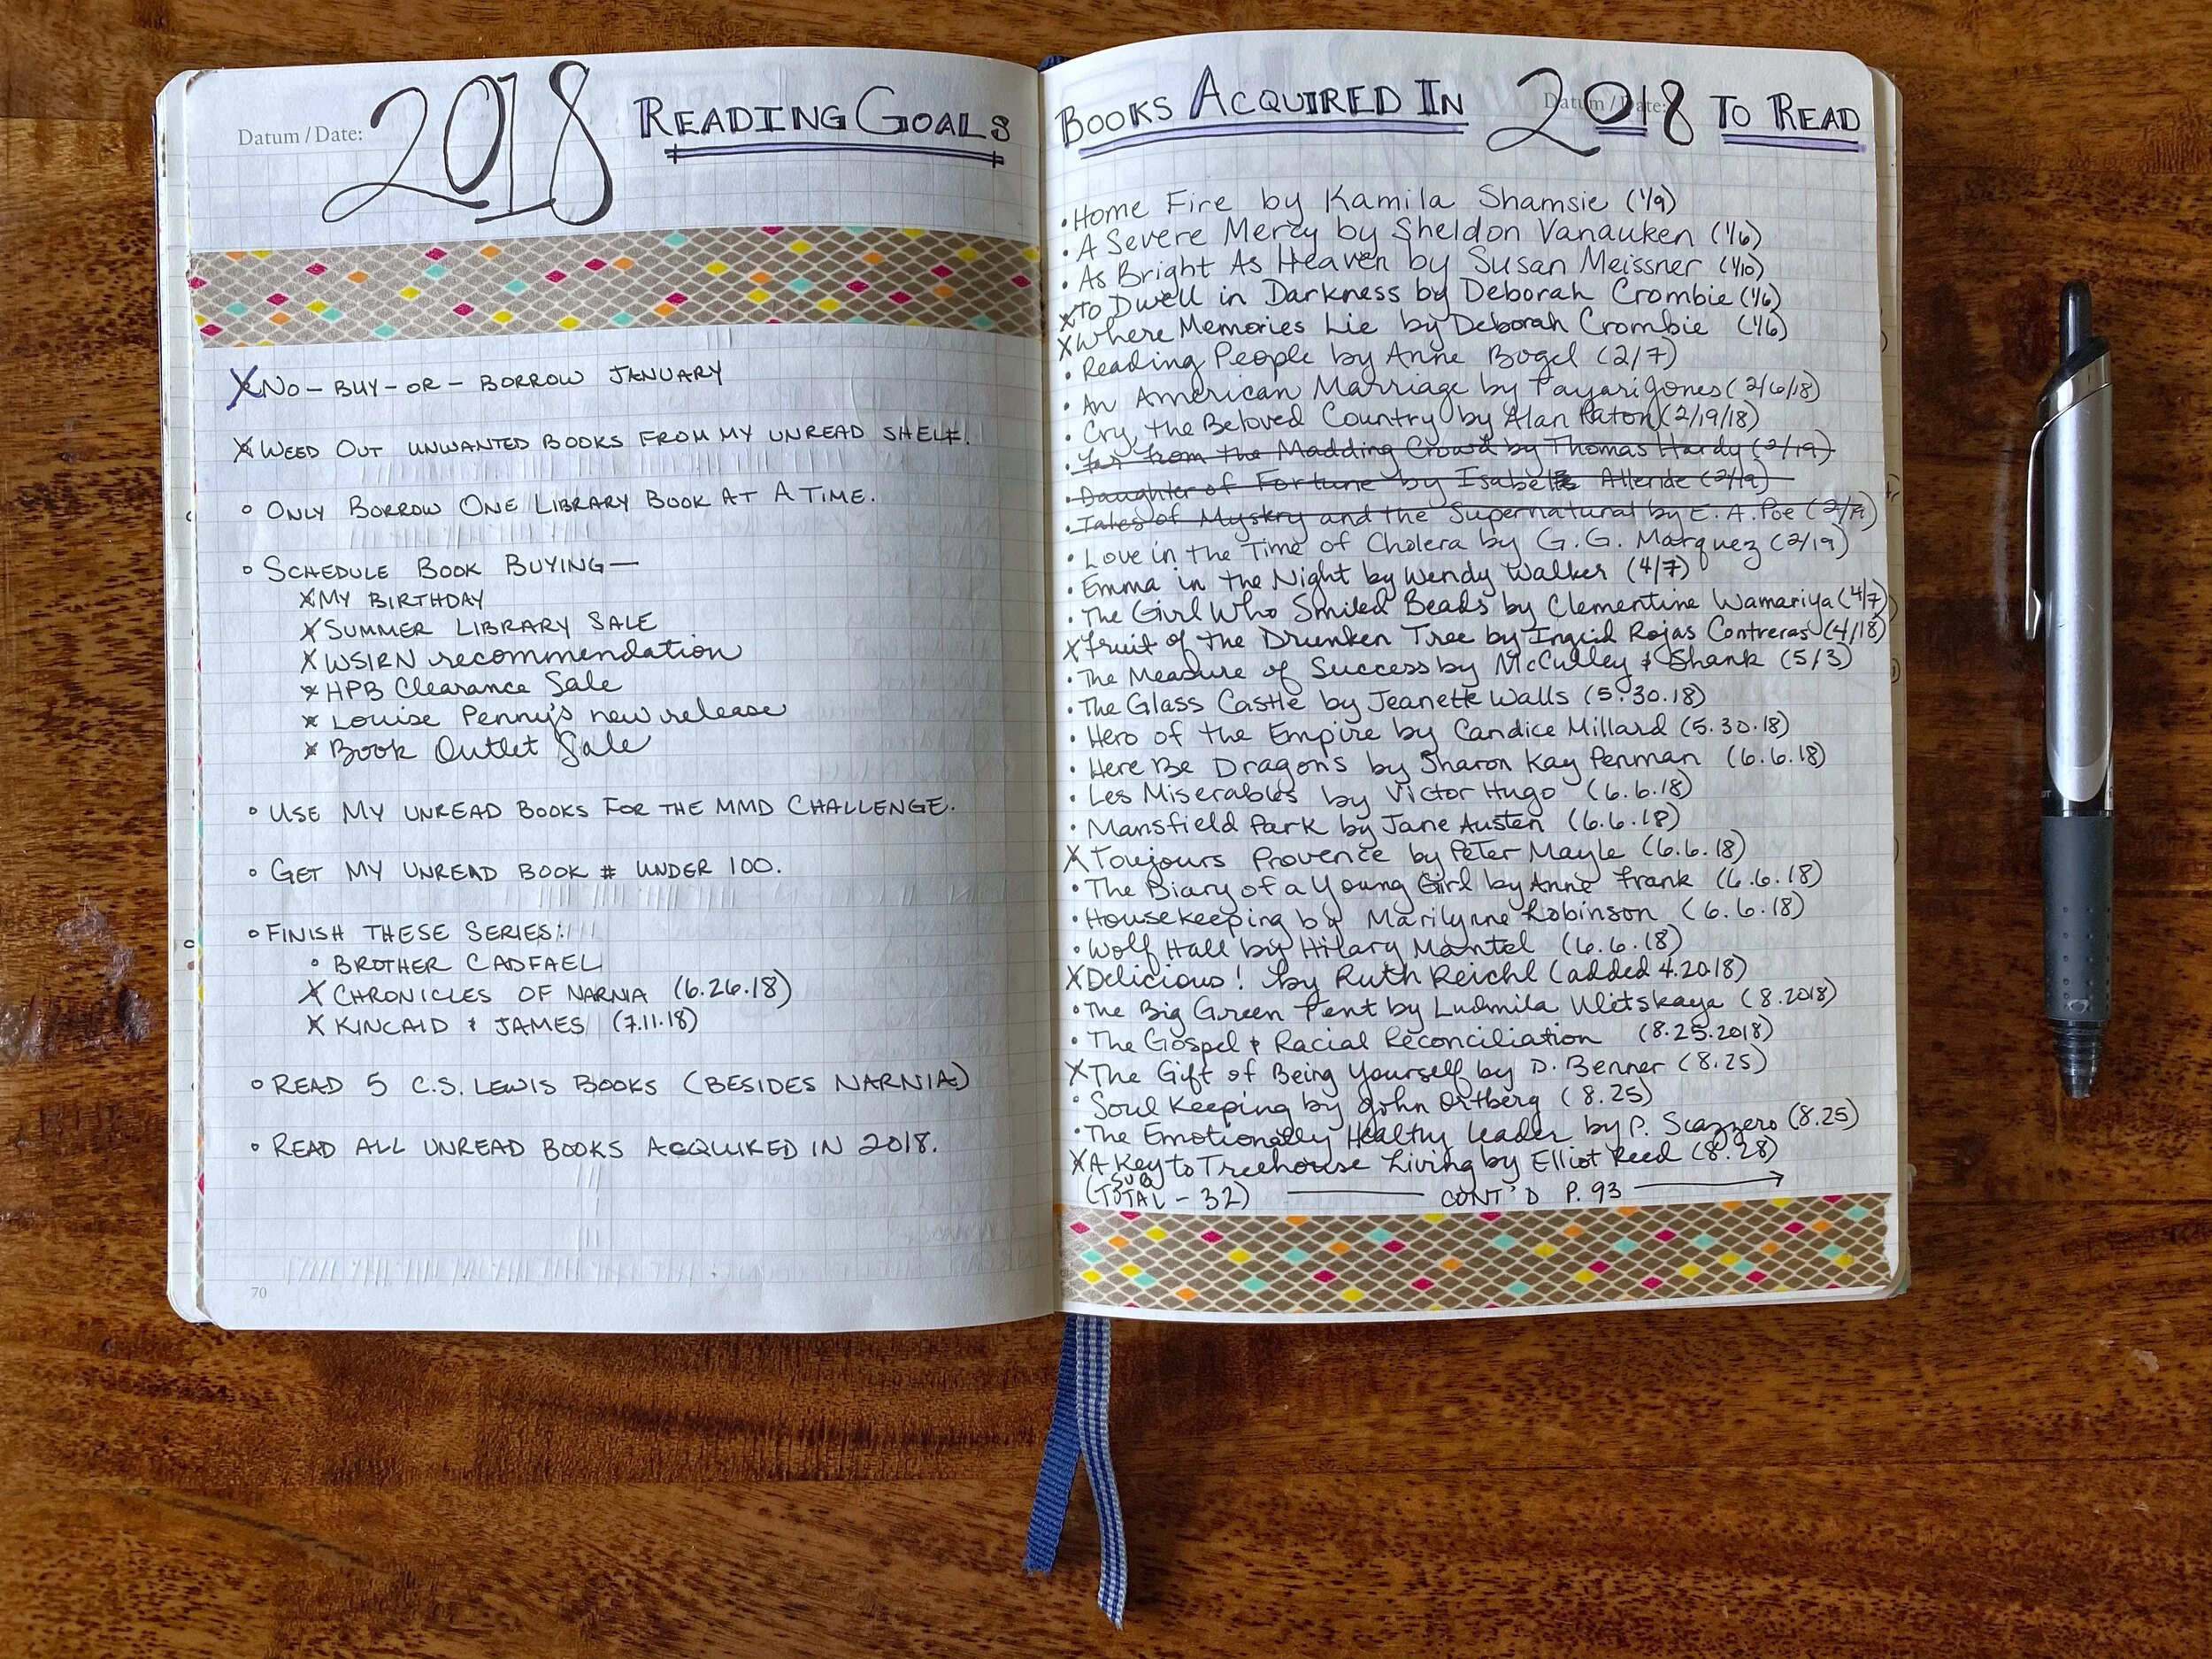 Datum / Date:
2018 READING GOALS
X NO-BUY-OR-BORROW JANUARY
X WEED OUT UNWANTED BOOKS FROM MY UNREAD SHELF.
◦ ONLY BORROW ONE LIBRARY BOOK AT A TIME.
◦ SCHEDULE BOOK BUYING—
X MY BIRTHDAY
X SUMMER LIBRARY SALE
X WSIRN recommendation
X HPB Clearance Sale
X Louise Penny's new release
X Book Outlet Sale
◦ USE MY UNREAD BOOKS FOR THE MMD CHALLENGE.
◦ GET MY UNREAD BOOK # UNDER 100.
◦ FINISH THESE SERIES:
◦ BROTHER CADFAEL
X CHRONICLES OF NARNIA (6.26.18)
X KINCAID & JAMES (7.11.18)
◦ READ 5 C.S. LEWIS BOOKS (BESIDES NARNIA)
◦ READ ALL UNREAD BOOKS ACQUIRED IN 2018.
70
Datum / Date:
BOOKS ACQUIRED IN 2018 TO READ
• Home Fire by Kamila Shamsie (1/9)
• A Severe Mercy by Sheldon Vanauken (1/6)
• As Bright As Heaven by Susan Meissner (1/10)
X To Dwell in Darkness by Deborah Crombie (1/6)
X Where Memories Lie by Deborah Crombie (1/6)
• Reading People by Anne Bogel (2/7)
• An American Marriage by Tayari Jones (2/6/18)
• Cry, the Beloved Country by Alan Paton (2/19/18)
• Far from the Madding Crowd by Thomas Hardy (2/19)
• Daughter of Fortune by Isabelle Allende (2/19)
• Tales of Mystery and the Supernatural by E. A. Poe (2/19)
• Love in the Time of Cholera by G. G. Marquez (2/19)
• Emma in the Night by Wendy Walker (4/7)
• The Girl Who Smiled Beads by Clementine Wamariya (4/7)
X Fruit of the Drunken Tree by Ingrid Rojas Contreras (4/18)
• The Measure of Success by McCulley & Shank (5/3)
• The Glass Castle by Jeanette Walls (5.30.18)
• Hero of the Empire by Candice Millard (5.30.18)
• Here Be Dragons by Sharon Kay Penman (6.6.18)
• Les Miserables by Victor Hugo (6.6.18)
• Mansfield Park by Jane Austen (6.6.18)
X Toujours Provence by Peter Mayle (6.6.18)
• The Diary of a Young Girl by Anne Frank (6.6.18)
• Housekeeping by Marilynne Robinson (6.6.18)
• Wolf Hall by Hilary Mantel (6.6.18)
X Delicious! by Ruth Reichl (added 4.20.18)
• The Big Green Tent by Ludmila Ulitskaya (8.2018)
• The Gospel & Racial Reconciliation (8.25.2018)
X The Gift of Being Yourself by D. Benner (8.25)
• Soul Keeping by John Ortberg (8.25)
• The Emotionally Healthy Leader by P. Scazzero (8.25)
X A Key to Treehouse Living by Elliot Reed (8.28)
(SUB TOTAL - 32) —— CONT'D P. 93 →